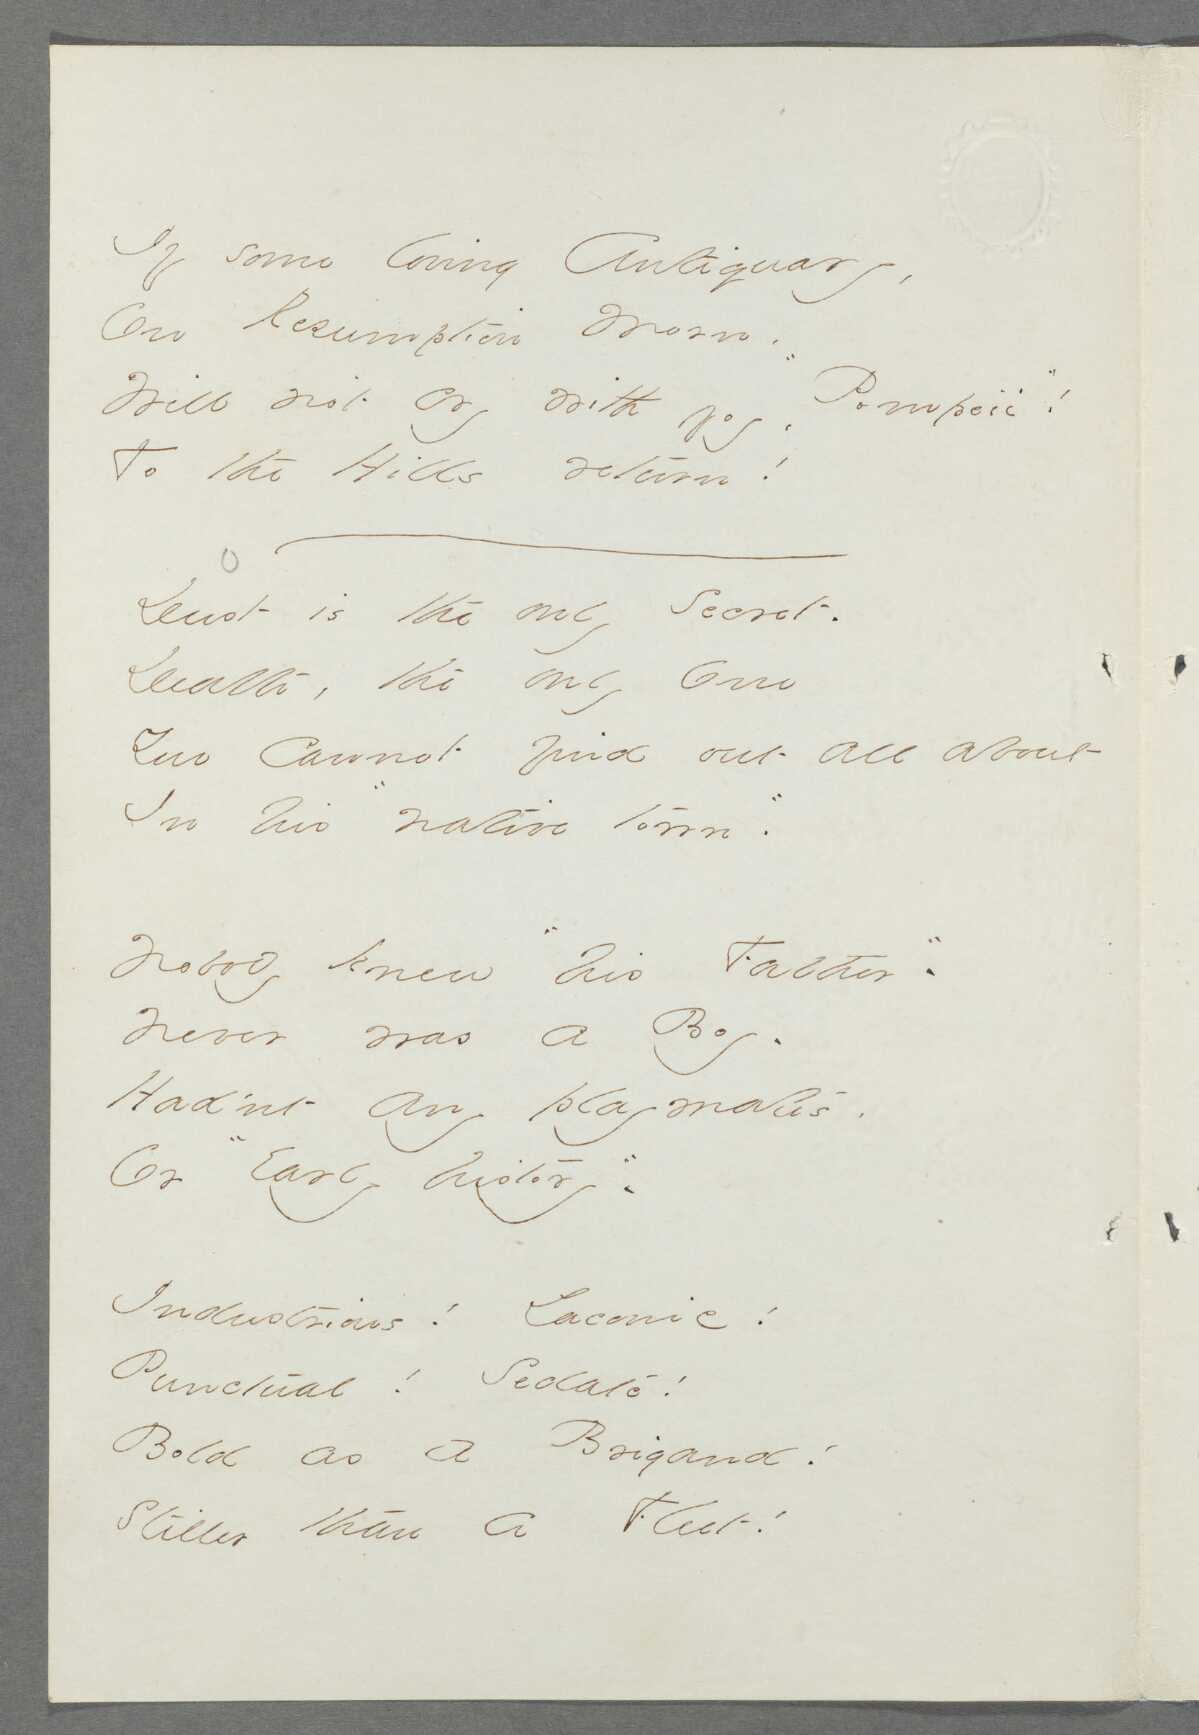 If some loving Antiquary,
On Resumption Morn,
Will not cry with joy, "Pompeii"!
To the Hills return!
Dust is the only Secret.
Death, the only One
You Cannot find out all about
In his "native town".
Nobody knew "his Father".
Never was a Boy.
Had'nt any playmates,
Or "Early history".
Industrious! Laconic!
Punctual! Sedate!
Bold as a Brigand!
Stiller than a Fleet!